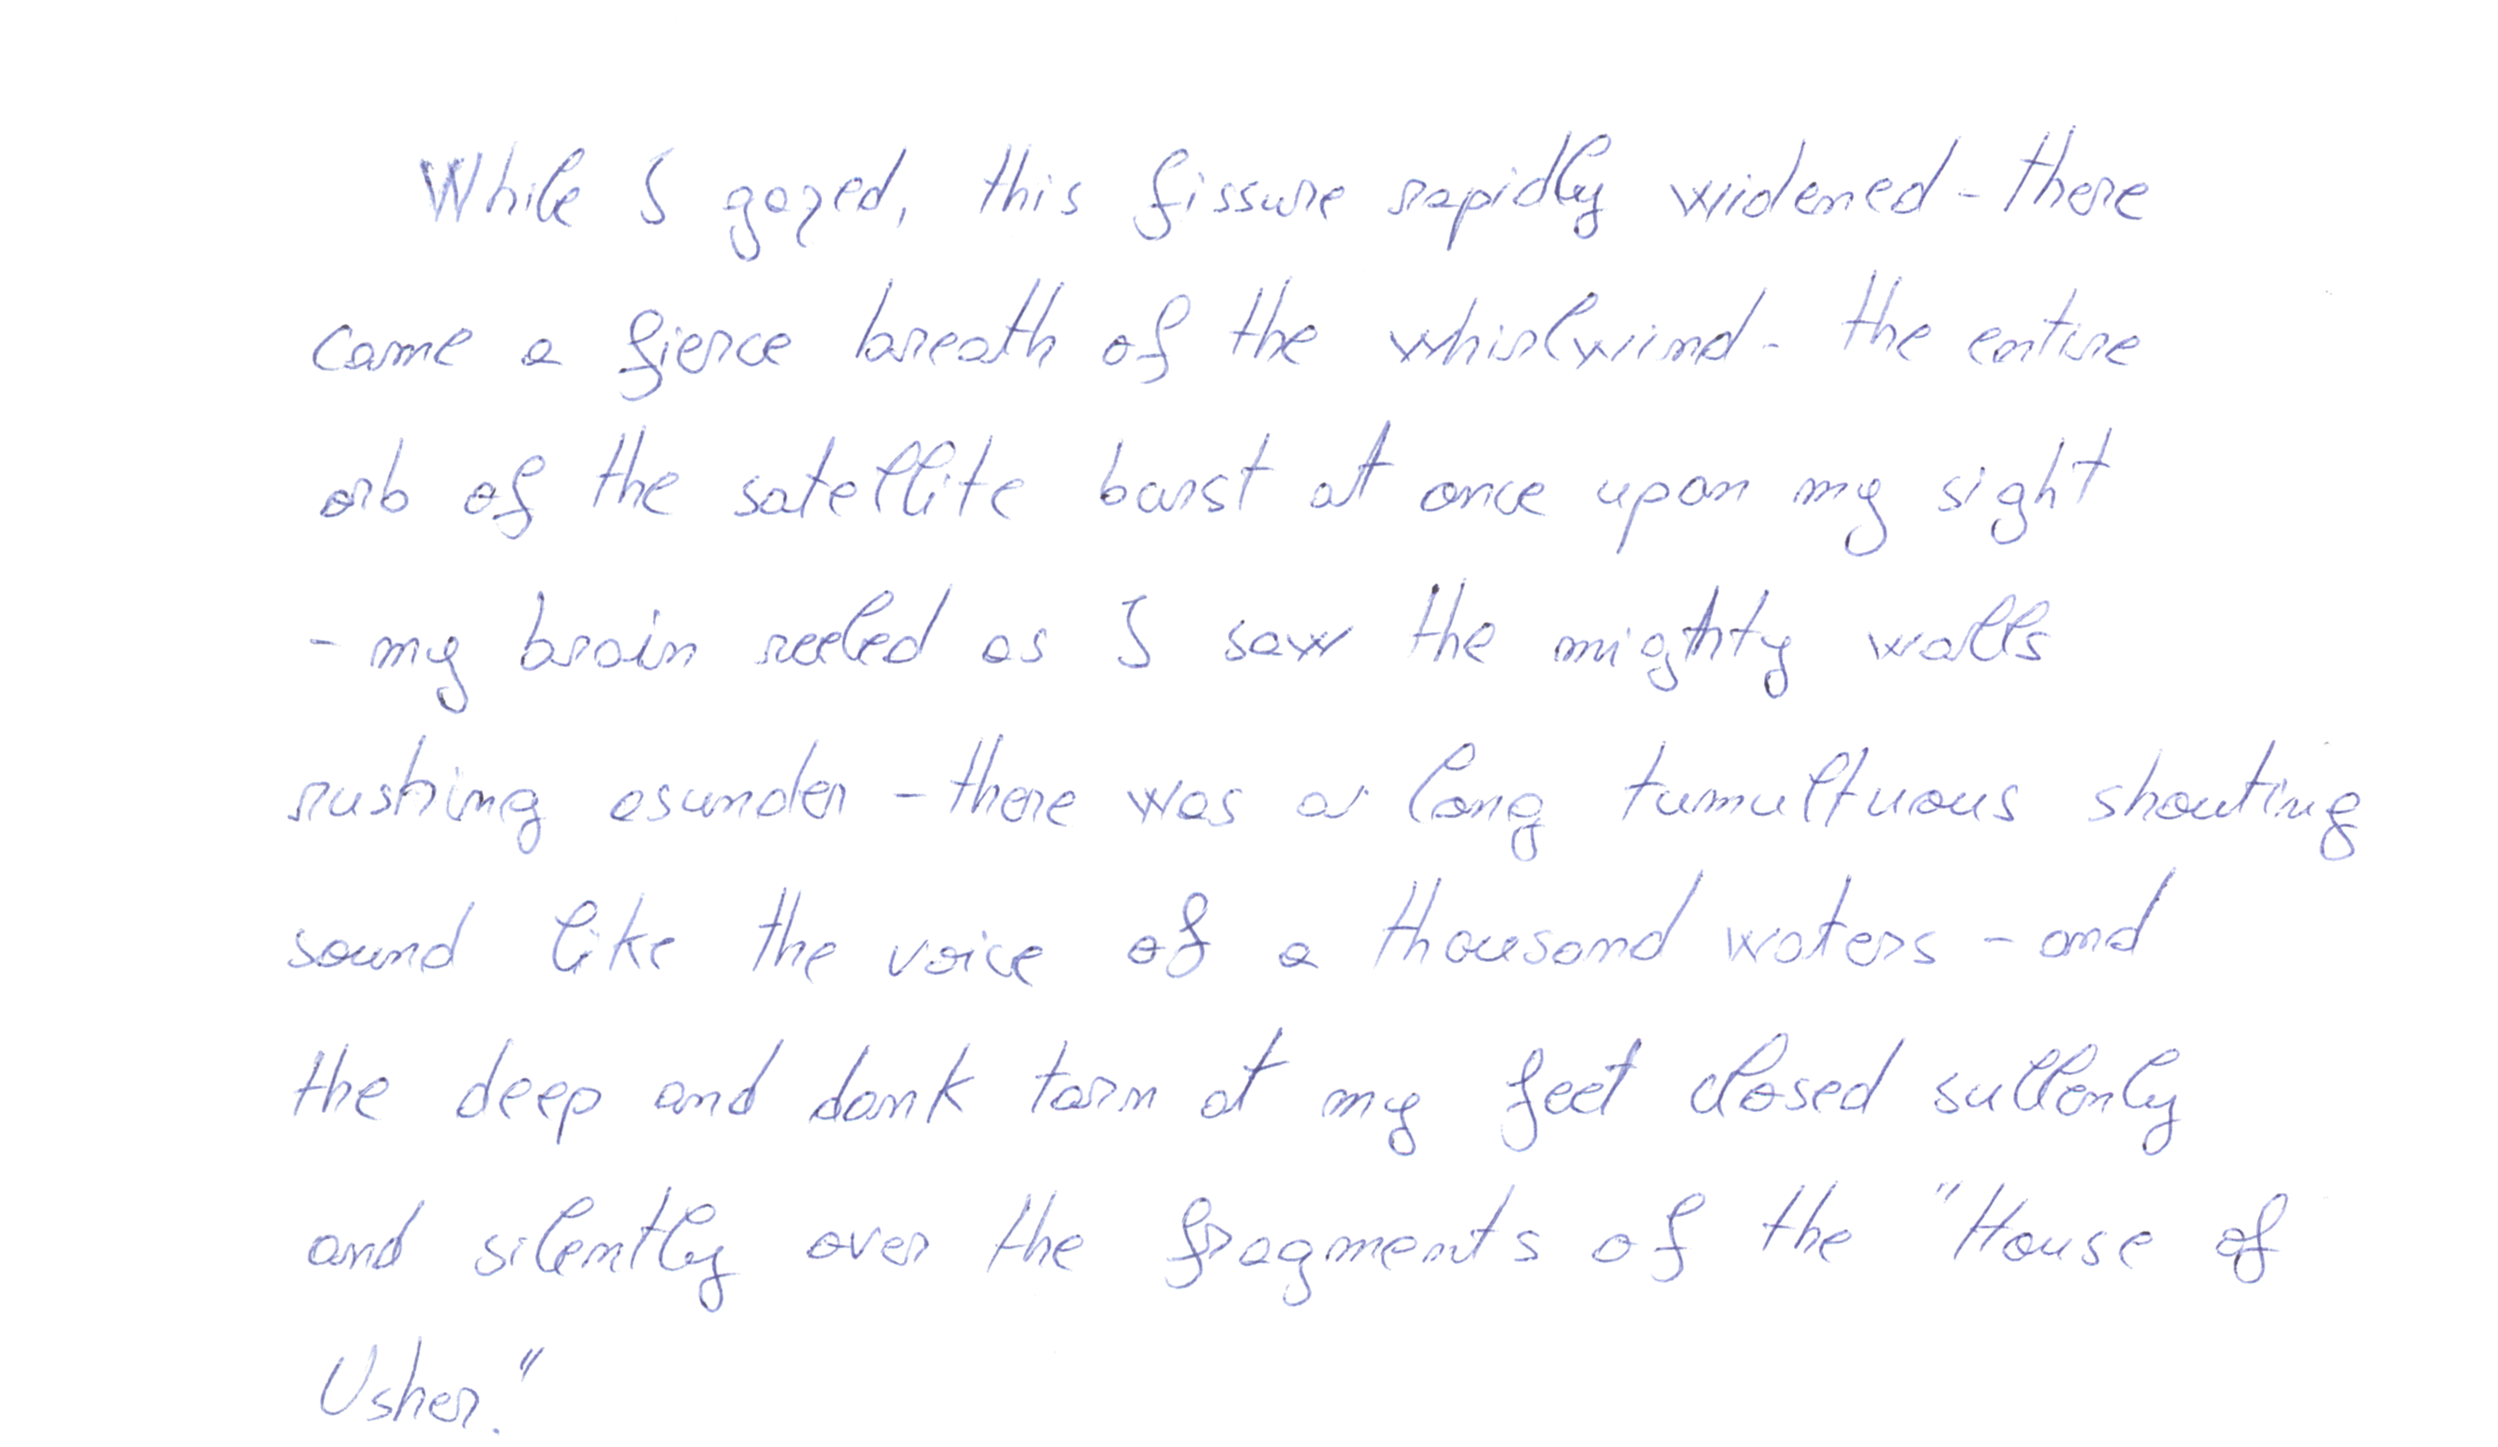 While I gazed, this fissure rapidly widened - there
came a fierce breath of the whirlwind - the entire
orb of the satellite burst at once upon my sight
- my brain reeled as I saw the mighty walls
rushing asunder - there was a long tumultuous shouting
sound like the voice of a thousand waters - and
the deep and dank tarn at my feet closed sullenly
and silently over the fragments of the "House of
Usher."